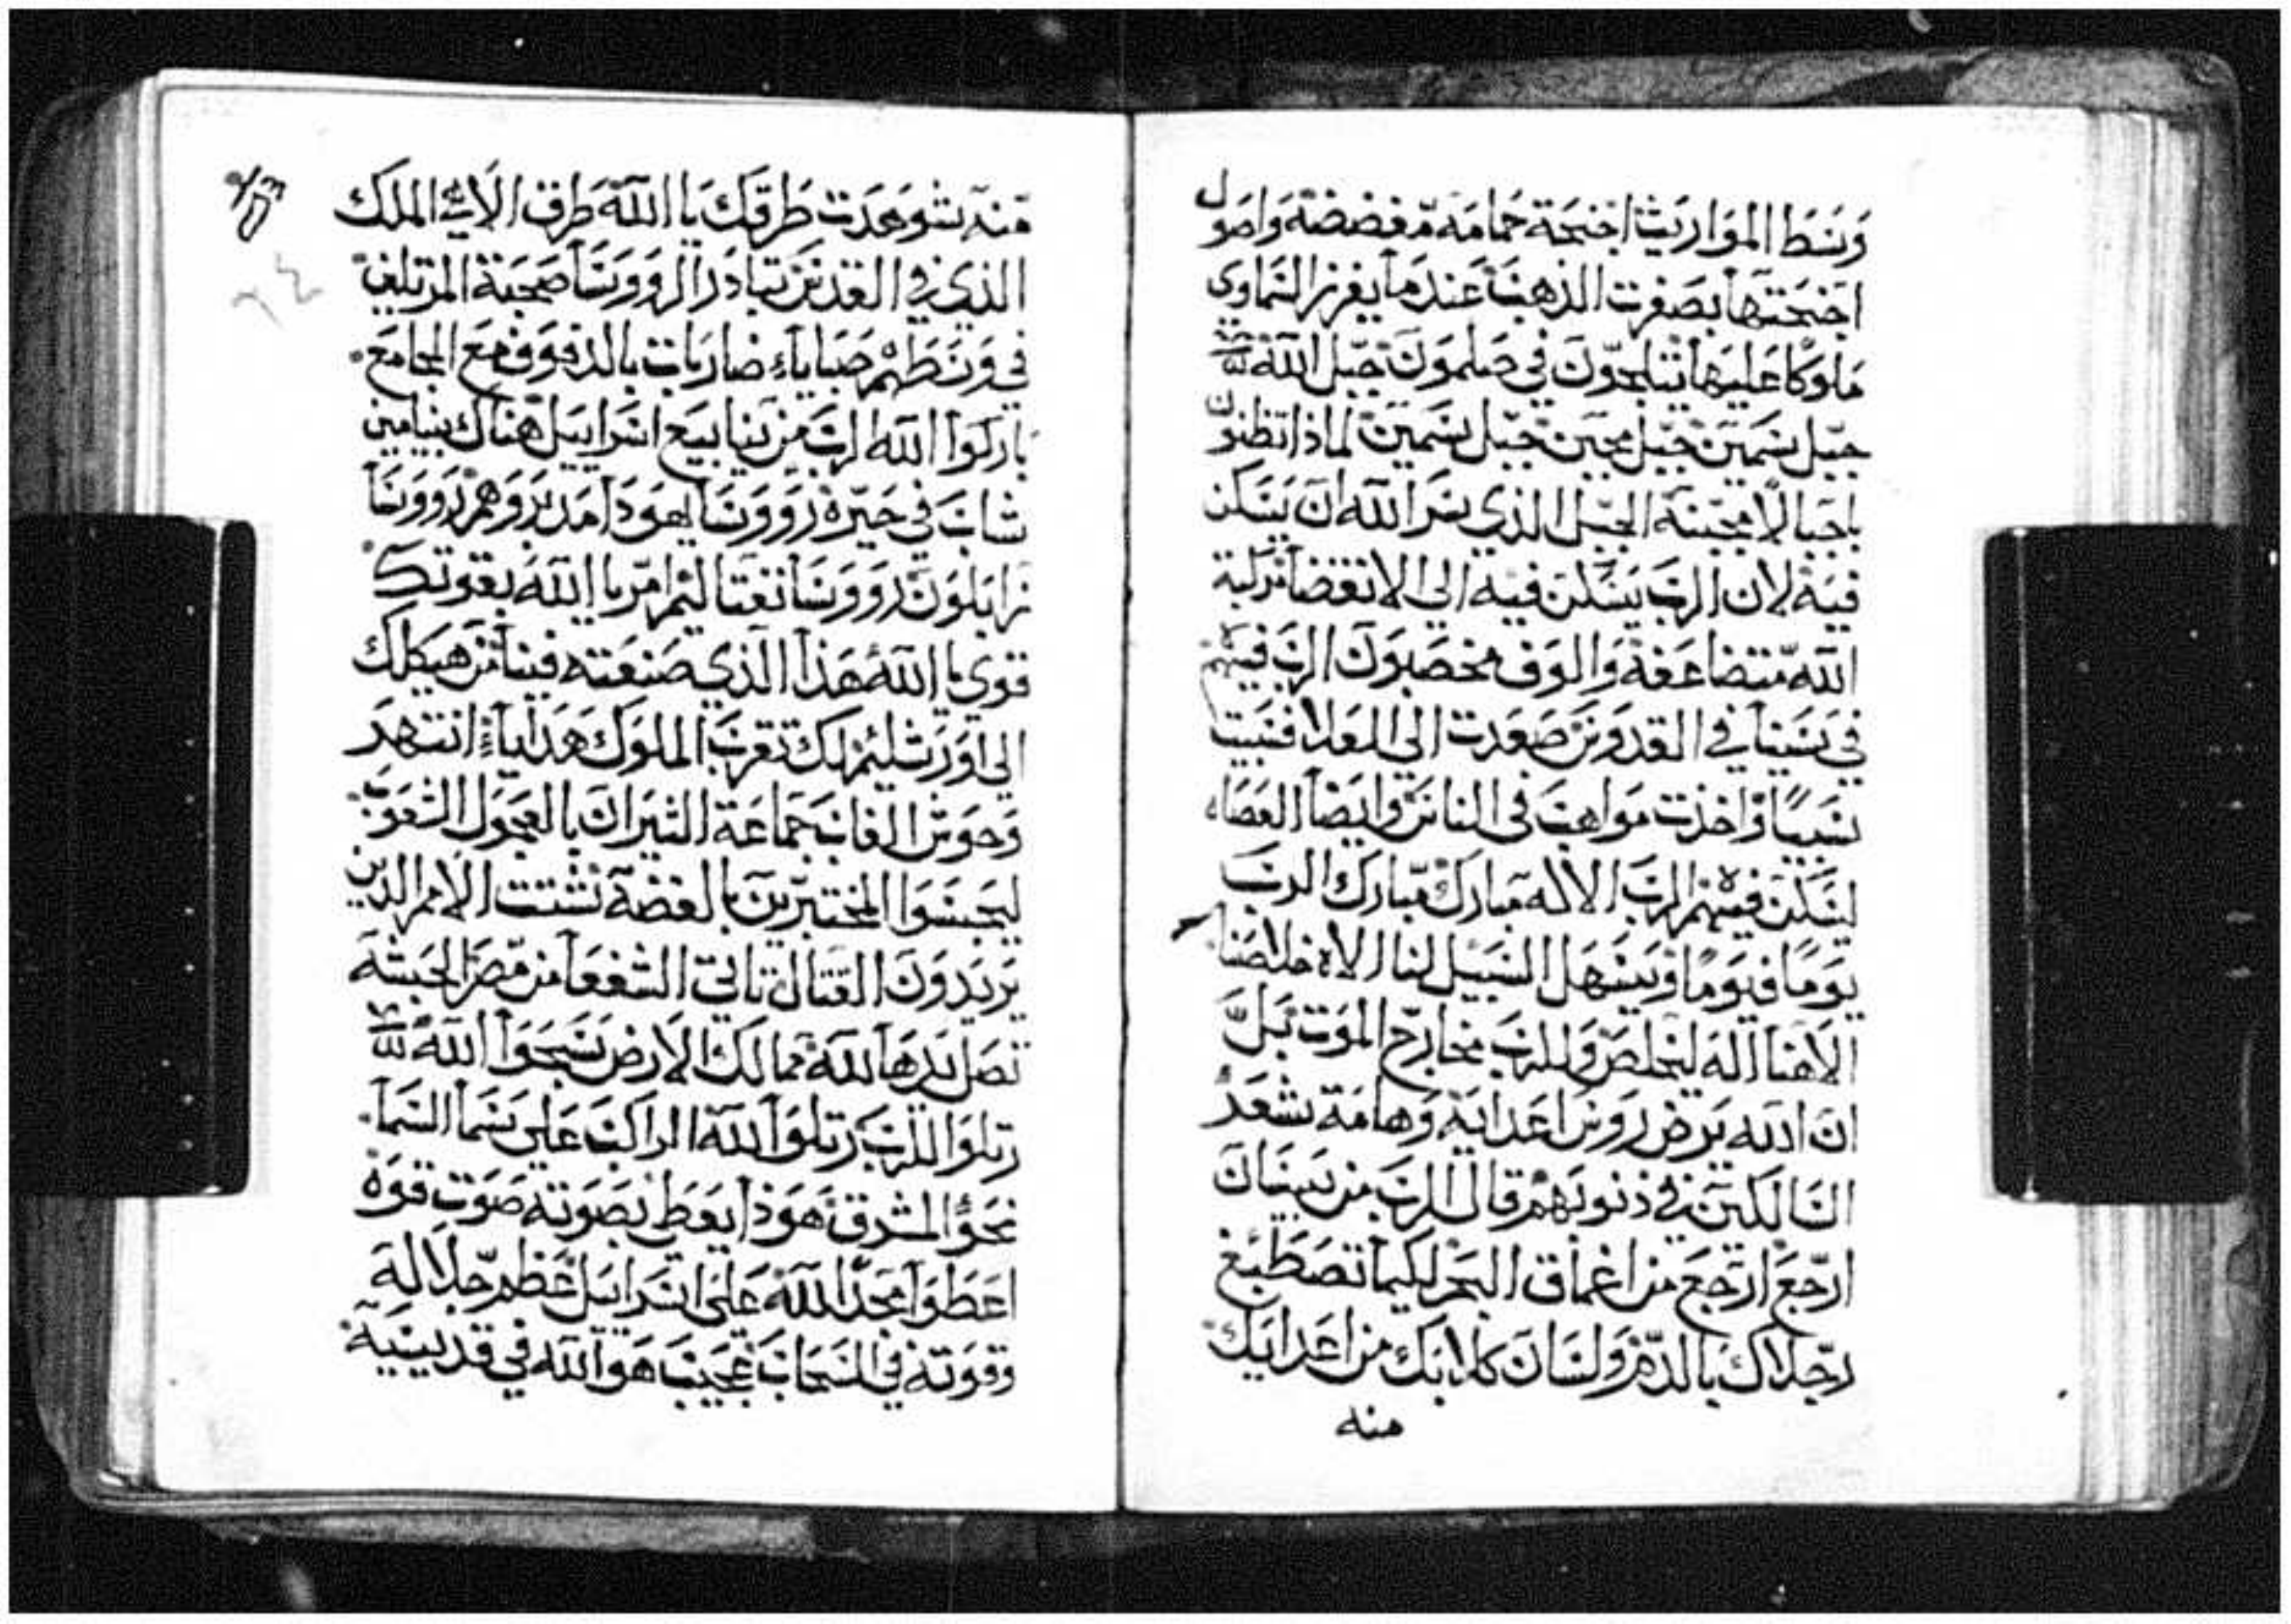 وسط المواريث اجنحة حمامة مفضضة واصول
اجنحتها بصفرت الذهب عندما يفرز السماوي
ملوكا عليها يتلجون في صلمون جبل الله
جبل سمين جبل مجبن جبل سمين لماذا تظنون
يا جبالا مجبنة الجبل الذي سر الله ان يسكن
فيه لان الرب يسكن فيه الي الانقضا مركبة
الله متضاعفة والوف مخصبون الرب فيهم
في سينا في القدوس صعدت الي العلا فسبيت
سبيا واخذت مواهب في الناس وايضا العصاه
ليسكن فيهم الرب الاله مبارك مبارك الرب
يوما فيوما ويسهل السبيل لنا الاه خلاصنا
الاهنا اله ليخلص وللرب مخارج الموت بل
ان الله يرض روس اعدايه وهامة شعر
السالكين في ذنوبهم قال الرب من بيسان
ارجع ارجع من اعماق البحر لكيما تصطبغ
رجلاك بالدم ولسان كلابك من اعدايك
منه
منه شوهدت طرقك يا الله طرق الاهي الملك
الذي في القدس تبادر الرووسا صحبة المرتلين
في وسطهم صبايا ضاربات بالدفوف مع المجامع
باركوا الله الرب من ينابيع اسراييل هناك بنيامين
شاب في حيره رووسا يهودا مدبروهم رووسا
زابلون رووسا نفتاليم امر يا الله بقوتك
قوي يا الله هذا الذي صنعته فينا من هيكلك
الي اورشليم لك تقرب الملوك هدايا انتهر
وحوش الغاب جماعة الثيران بالعجول الشعوب
ليحبسوا المختبرين بالفضة شتت الامم الذين
يريدون القتال تاتي الشفعا من مصر الحبشه
تصل يدها لله ممالك الارض سبحوا الله
رتلوا للرب رتلوا لله الراكب علي سما السما
نحو المشرق هوذا يعط بصوته صوت قوه
اعطوا مجدا لله علي اسراييل عظم جلاله
وقوته في السحاب عجيب هو الله في قديسيه